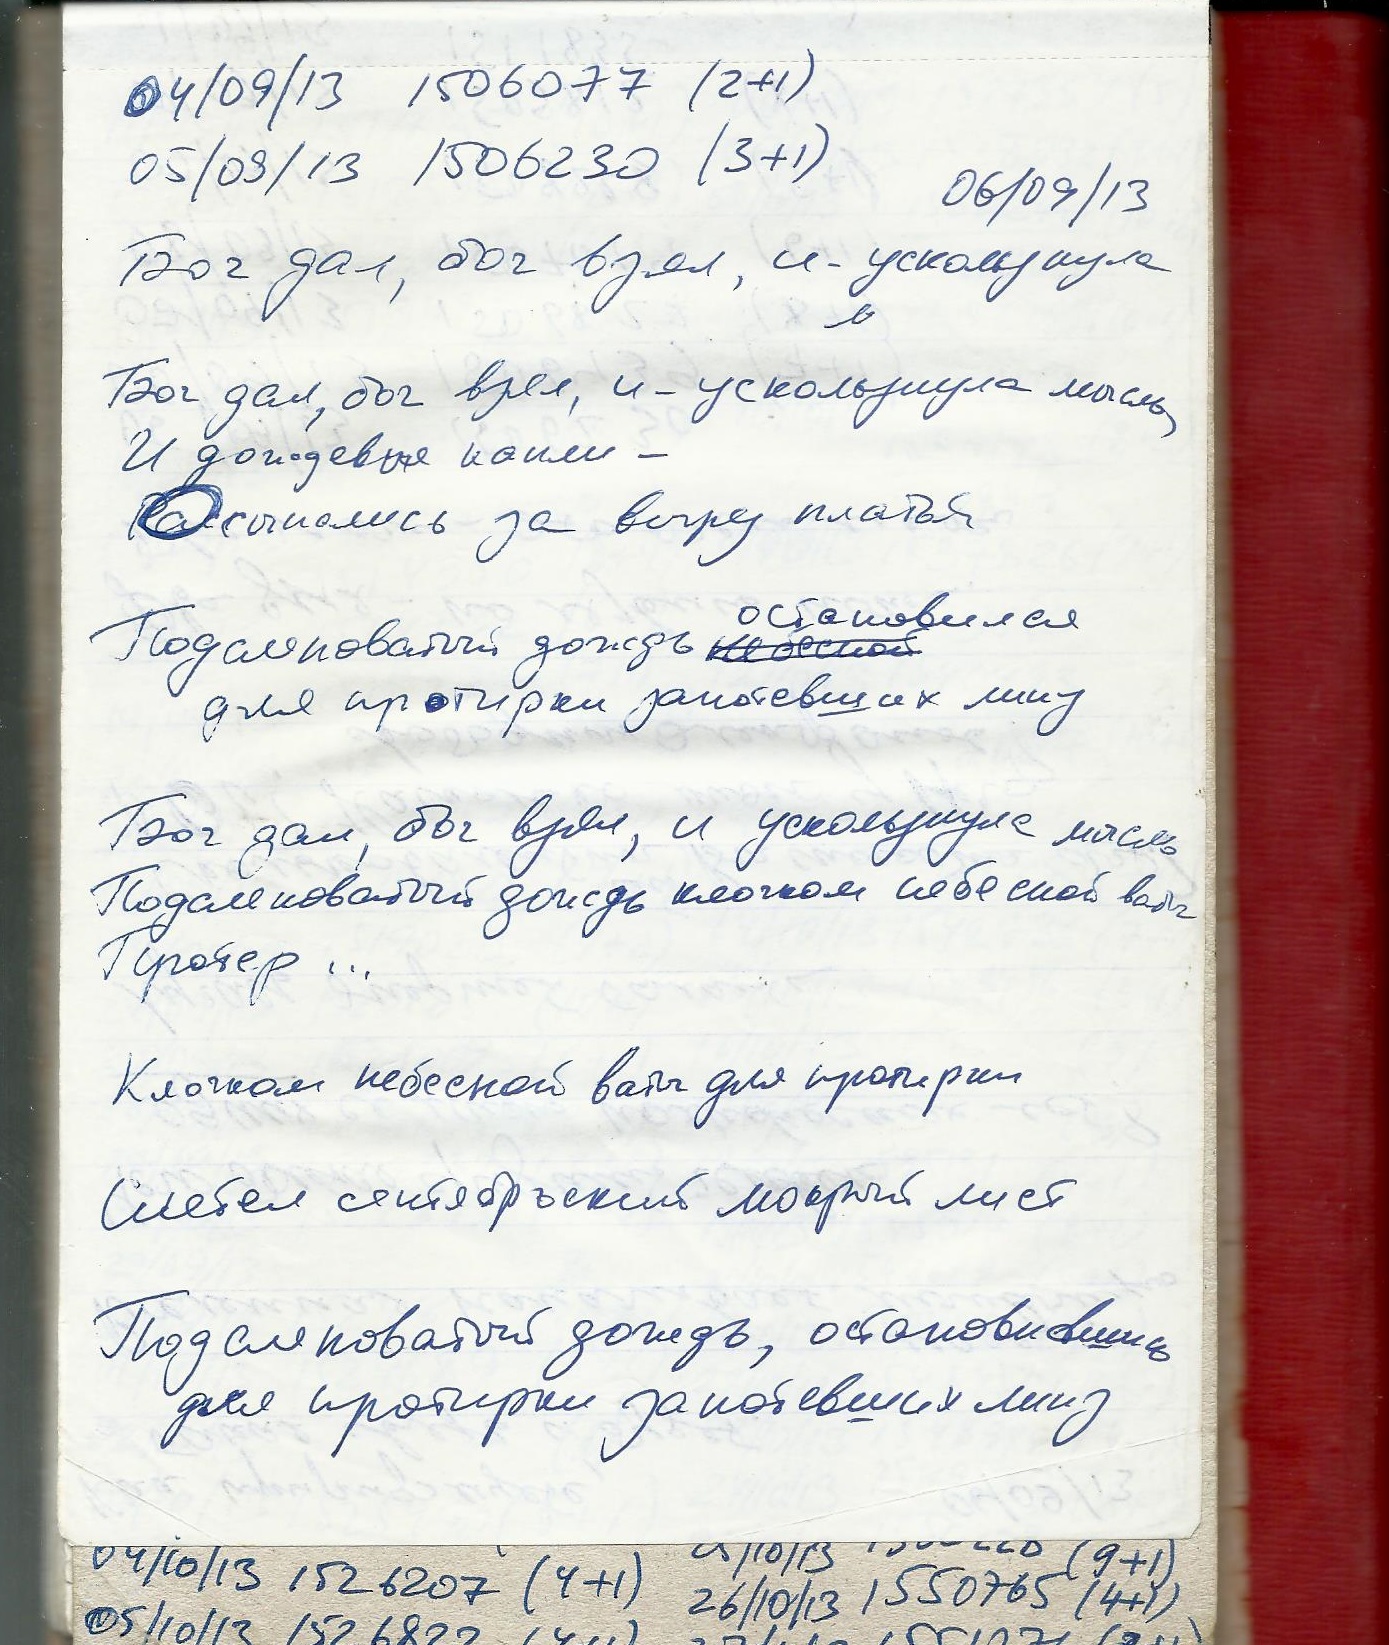 04/09/13 1506077 (2+1)
05/09/13 1506230 (3+1)
06/09/13
Бог дал, бог взял, и - ускользнула
м
Бог дал, бог взял, и - ускользнула мысль,
И дождевые капли -
Рассыпались за вырез платья
остановился
Подслеповатый дождь небесной
для протирки запотевших линз
Бог дал, бог взял, и ускользнула мысль
Подслеповатый дождь клочком небесной ваты
Протер ...
Клочком небесной ваты для протирки
Слетел сентябрьский мокрый лист
Подслеповатый дождь, остановившись
для протирки запотевших линз
04/10/13 1526207 (4+1)
/10/13 (9+1)
26/10/13 1550765 (4+1)
05/10/13